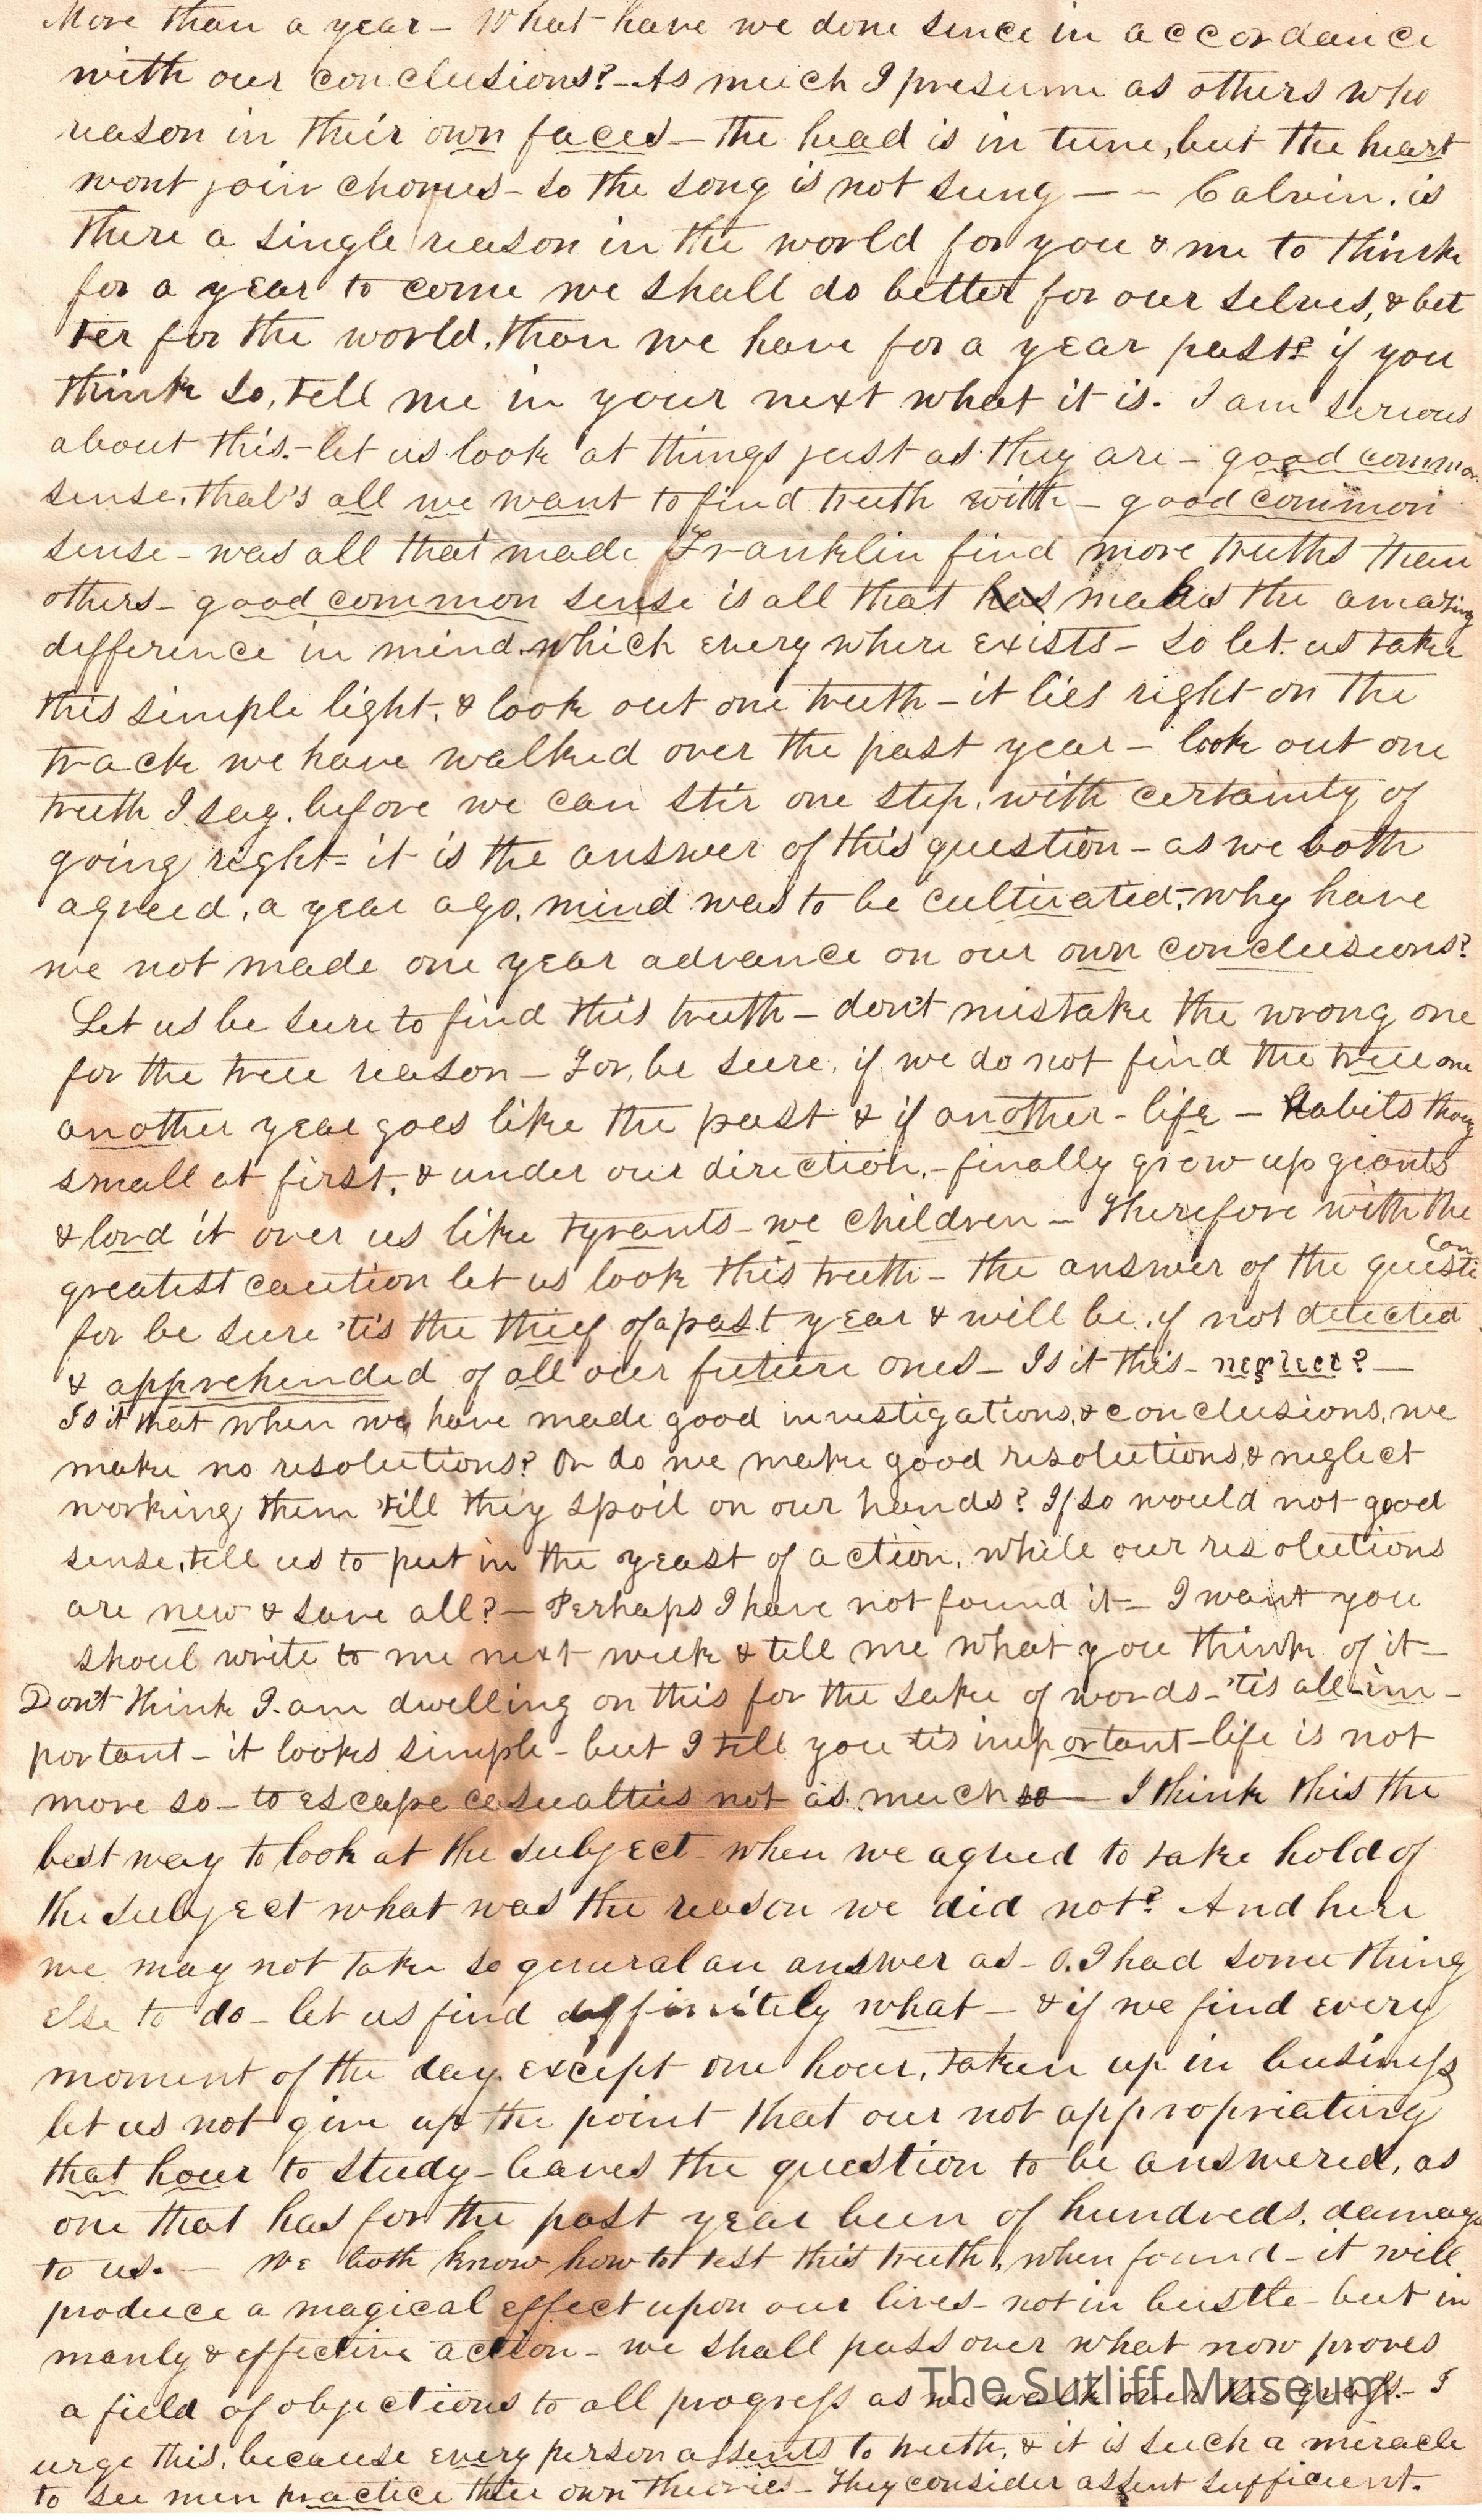 More than a year – What have we done since in accordance
with our conclusions? – As much I presume as others who
reason in their own faces – the head is in tune, but the heart
wont join chorus – so the song is not sung — – Calvin. is
there a single reason in the world for you & me to think
for a year to come we shall do better for our selves, & bet
ter for the world, than we have for a year past? if you
think so, tell me in your next what it is. I am serious
about this. – let us look at things just as they are – good common
sense. that's all we want to find truth with – good common
sense – was all that made Franklin find more truths than
others – good common sense is all that has makes the amazing
difference in mind which every where exists – so let us take
this simple light, & look out one truth – it lies right on the
track we have walked over the past year – look out one
truth I say, before we can stir one step, with certainty of
going right = it is the answer of this question – as we both
agreed, a year ago, mind was to be cultivated; why have
we not made one year advance on our own conclusions?
Let us be sure to find this truth – don't mistake the wrong one
for the true reason – For, be sure, if we do not find the true one
another year goes like the past & if another – life – Habits thoug
small at first, & under our direction, – finally grow up giants
& lord it over us like tyrants – we children – Therefore with the
greatest caution let us look this truth – the answer of the questi
on
for be sure 'tis the thief of a past year & will be, if not detected
& apprehended of all our future ones – Is it this – neglect? —
Is it that when we have made good investigations, & conclusions, we
make no resolutions? Or do we make good resolutions, & neglect
working them till they spoil on our hands? If so would not good
sense, tell us to put in the yeast of action, while our resolutions
are new & save all? – Perhaps I have not found it = I want you
shoul write to me next week & tell me what you think of it –
Don't think I am dwelling on this for the sake of words – 'tis all-im-
portant – it looks simple – but I tell you tis important – life is not
more so – to escape casualties not as much so — I think this the
best way to look at the subject – when we agreed to take hold of
the subject what was the reason we did not? And here
we may not take so general an answer as – O. I had some thing
else to do – let us find deffinitely what – & if we find every
moment of the day. except one hour, taken up in business
let us not give up the point that our not appropriating
that hour to study – leaves the question to be answered, as
one that has for the past year been of hundreds, damage
to us. — We both know how to test this truth, when found – it will
produce a magical effect upon our lives – not in bustle – but in
manly & effective action – we shall pass over what now proves
a field of objections to all progress as we walk over the grass. – I
urge this, because every person assents to truth, & it is such a miracle
to see men practice their own theories – They consider assent sufficient.
The Sutliff Museum